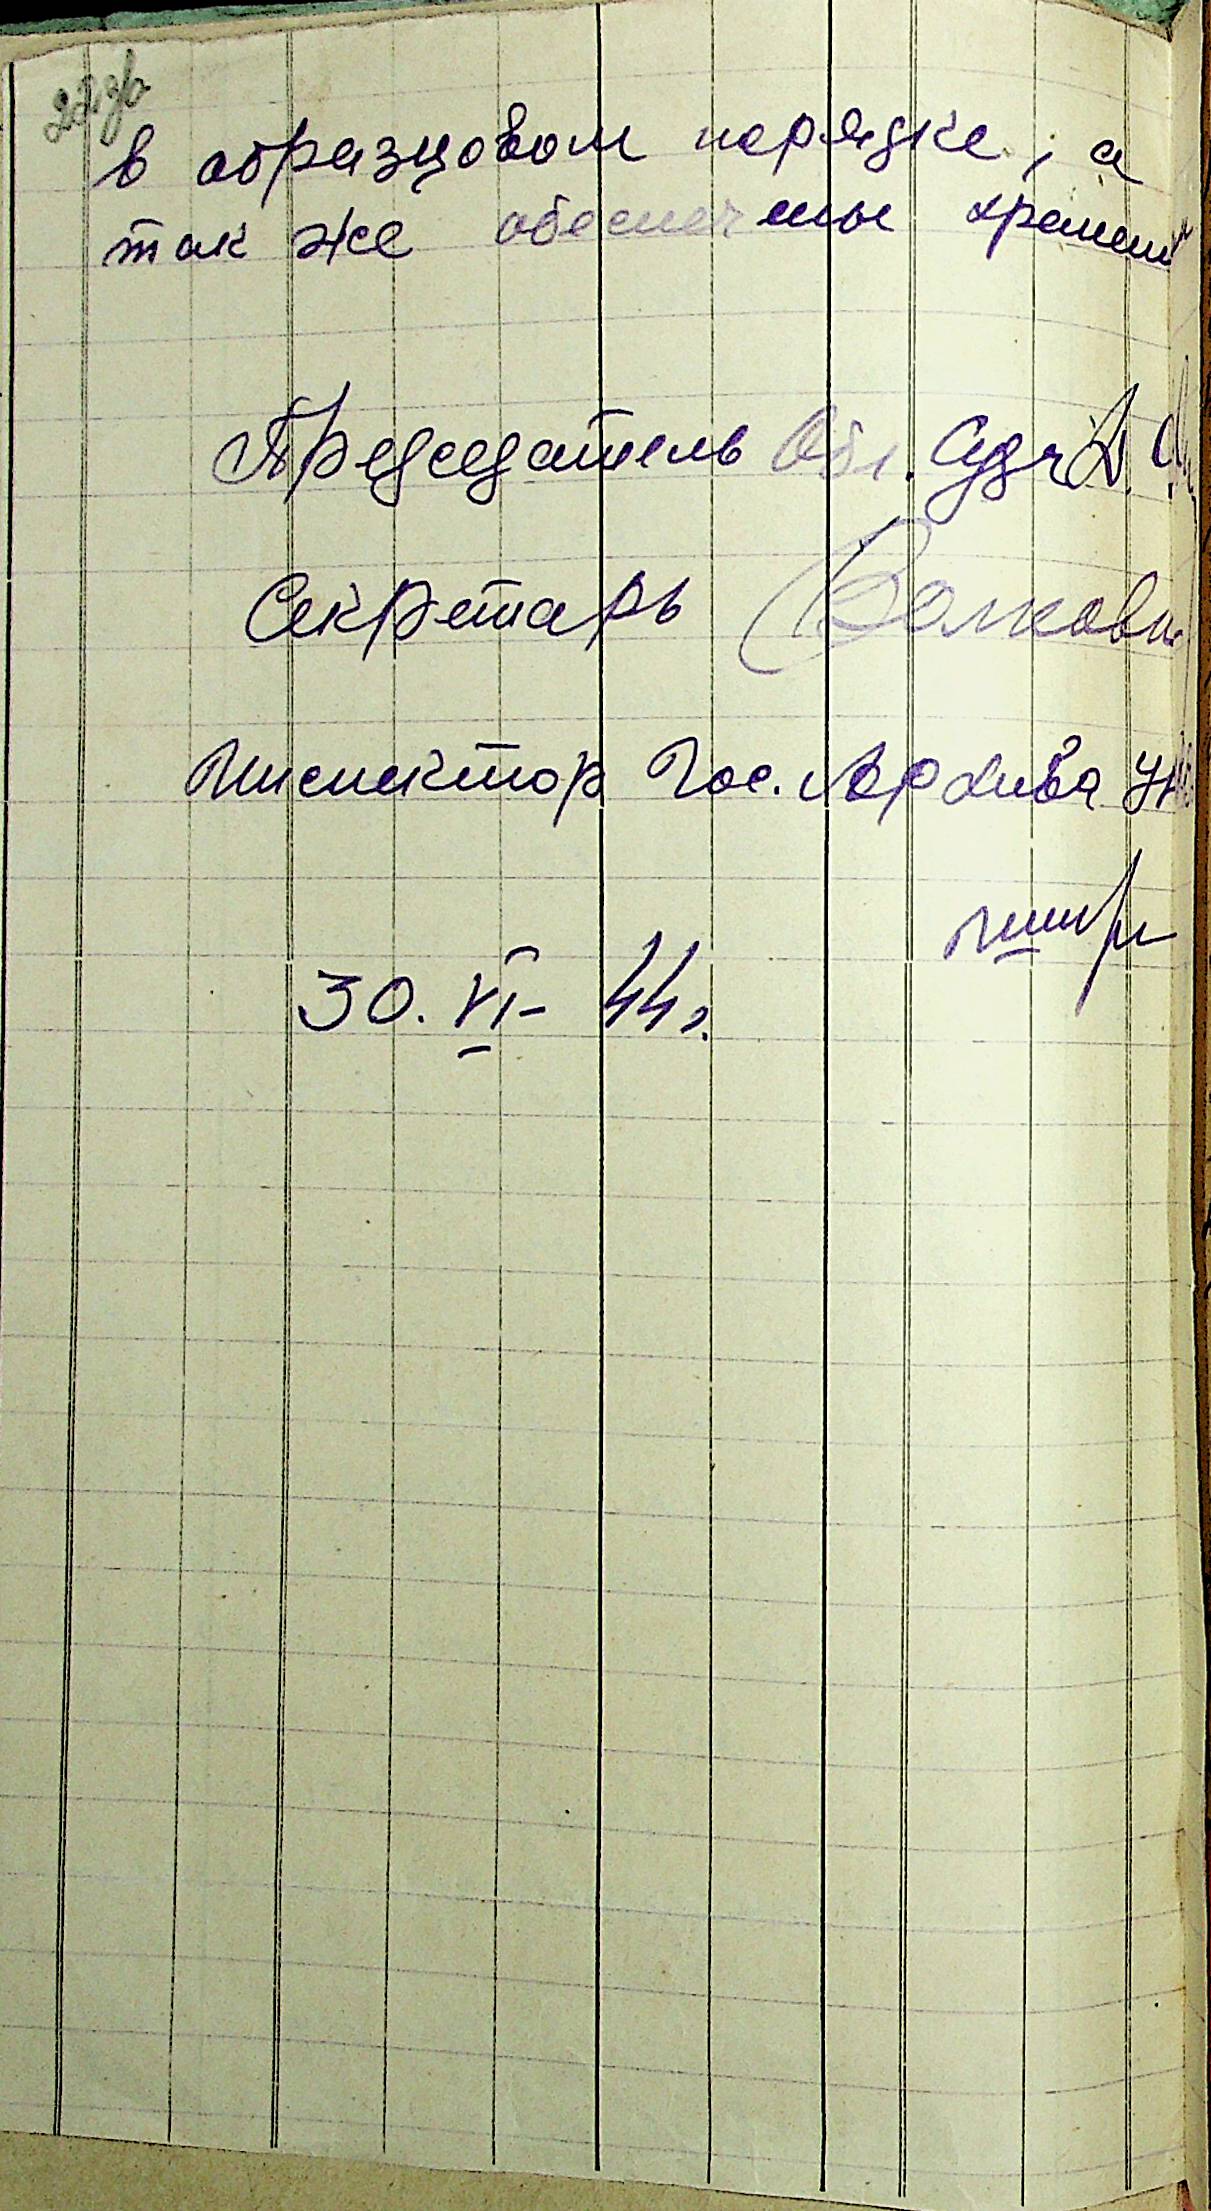 в образцовом порядке, а
так же обеспечены хранени
Председатель Обл. Суда
Секретарь
Инспектор Гос. Архива
30. VI- 44г.